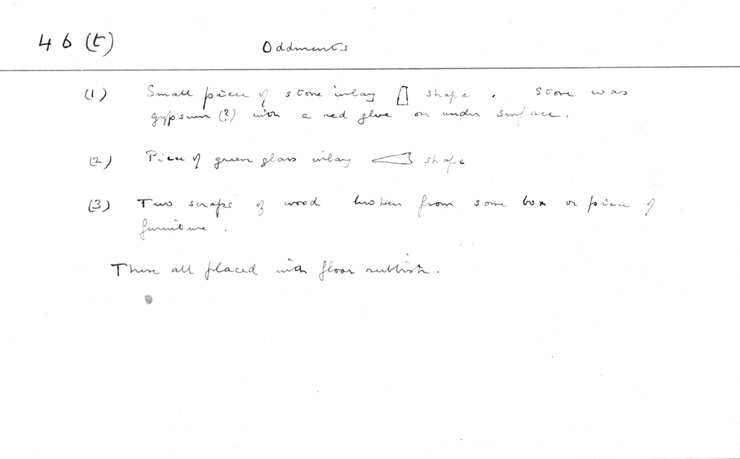 46 (t) Oddments
(1) Small piece of stone inlay shape. Stone was
gypsum (?) with a red glue on under surface.
(2) Piece of green glass inlay shape
(3) Two scraps of wood broken from some box or piece of
furniture.
These all placed with floor rubbish.